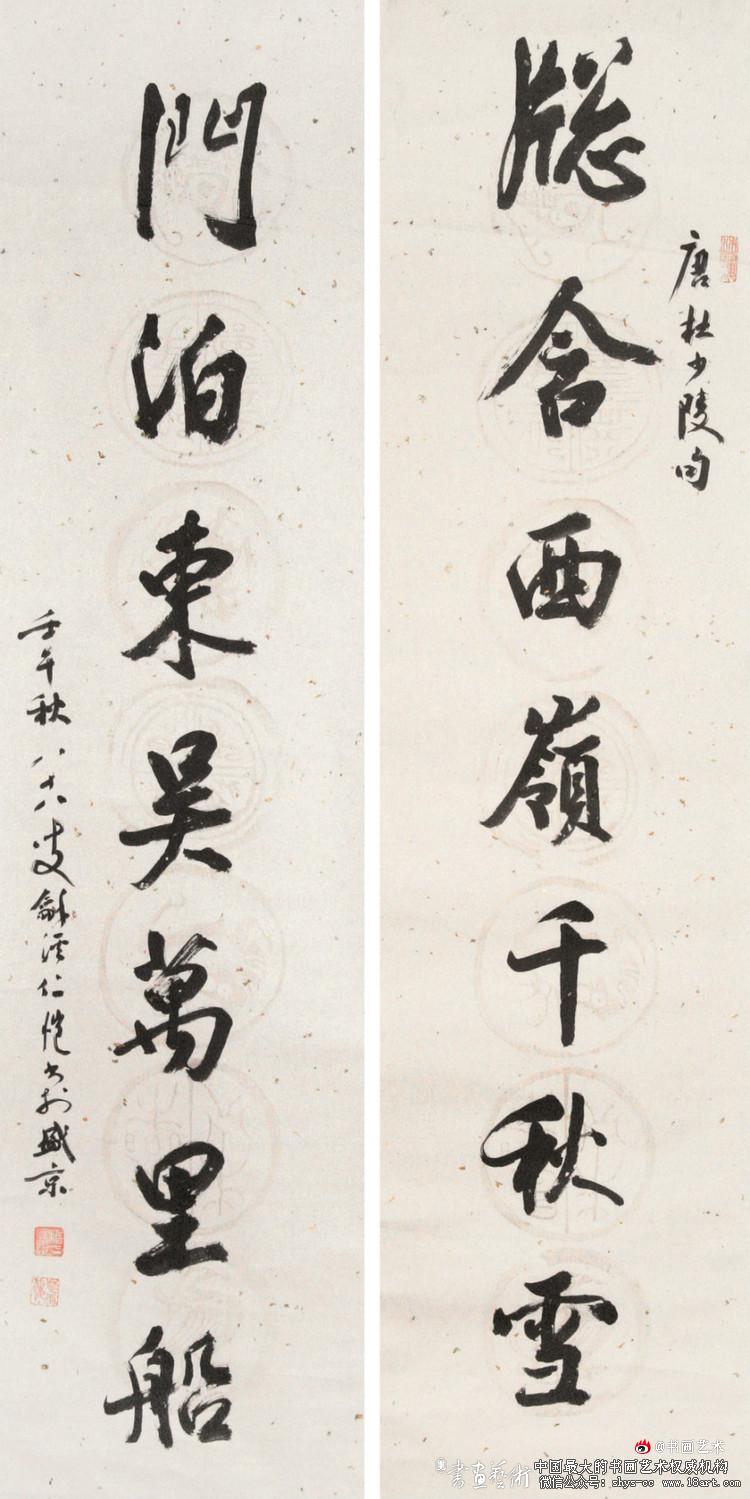 唐杜少陵句
牕含西嶺千秋雪
門泊東吴萬里船
壬午秋八十八叟龢溪仁愷书於盛京
@书画艺术
書畫藝術
中国最大的书画艺术权威机构
微信公众号：shys-cc www.18art.com